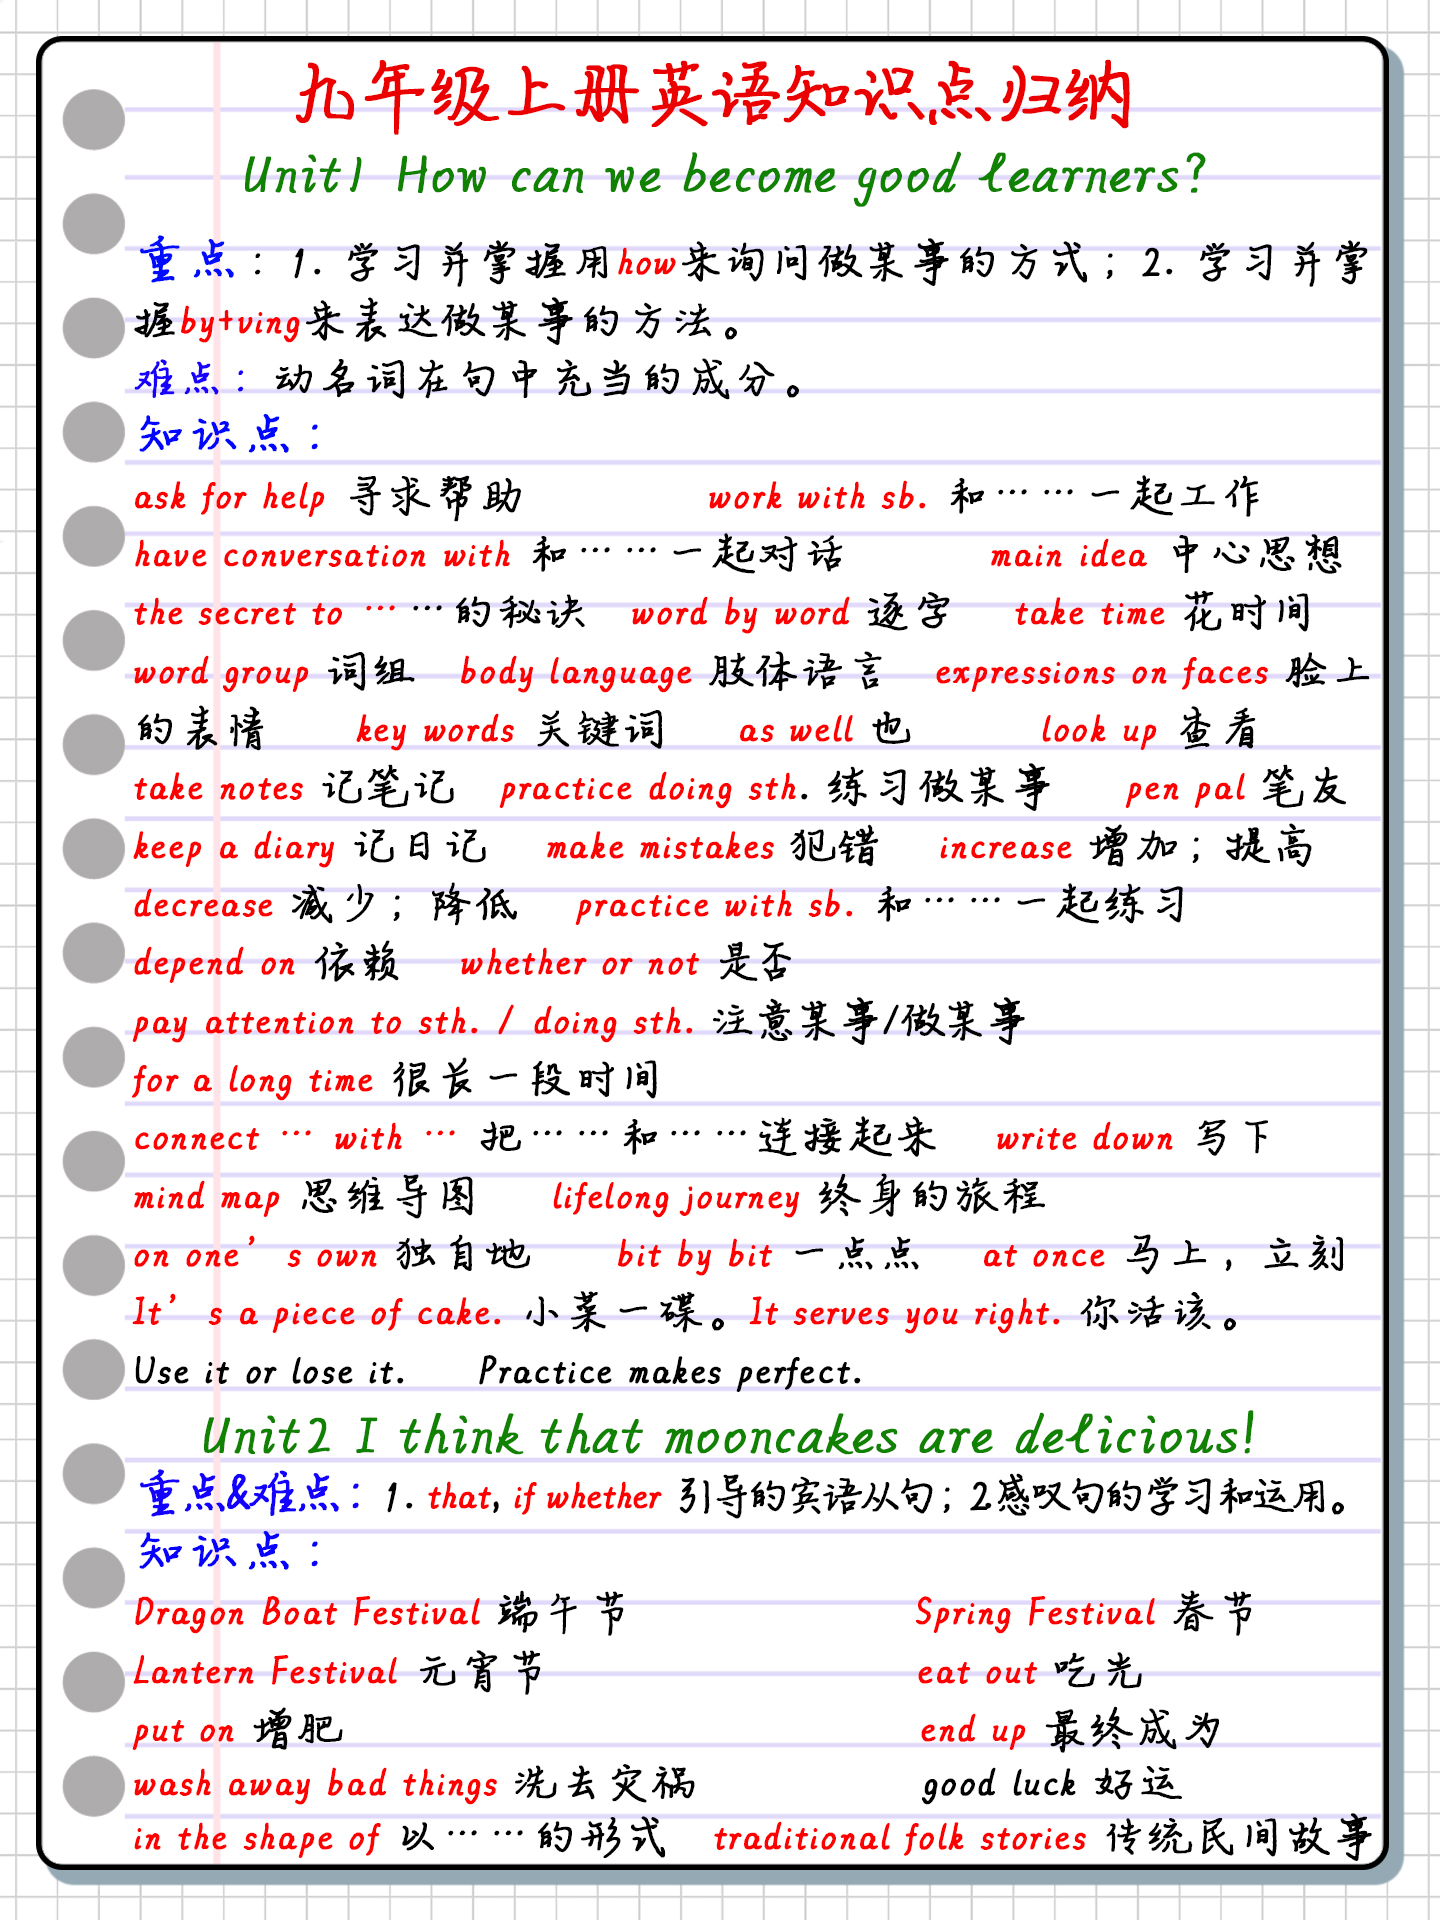 九年级上册英语知识点归纳
Unit1 How can we become good learners?
重点：1. 学习并掌握用how来询问做某事的方式；2. 学习并掌
握by+ving来表达做某事的方法。
难点：动名词在句中充当的成分。
知识点：
ask for help 寻求帮助 work with sb. 和……一起工作
have conversation with 和……一起对话 main idea 中心思想
the secret to ……的秘诀 word by word 逐字 take time 花时间
word group 词组 body language 肢体语言 expressions on faces 脸上
的表情 key words 关键词 as well 也 look up 查看
take notes 记笔记 practice doing sth. 练习做某事 pen pal 笔友
keep a diary 记日记 make mistakes 犯错 increase 增加；提高
decrease 减少；降低 practice with sb. 和……一起练习
depend on 依赖 whether or not 是否
pay attention to sth. / doing sth. 注意某事/做某事
for a long time 很长一段时间
connect … with … 把……和……连接起来 write down 写下
mind map 思维导图 lifelong journey 终身的旅程
on one’s own 独自地 bit by bit 一点点 at once 马上，立刻
It’s a piece of cake. 小菜一碟。It serves you right. 你活该。
Use it or lose it. Practice makes perfect.
Unit2 I think that mooncakes are delicious!
重点&难点：1. that, if whether 引导的宾语从句；2感叹句的学习和运用。
知识点：
Dragon Boat Festival 端午节 Spring Festival 春节
Lantern Festival 元宵节 eat out 吃光
put on 增肥 end up 最终成为
wash away bad things 洗去灾祸 good luck 好运
in the shape of 以……的形式 traditional folk stories 传统民间故事